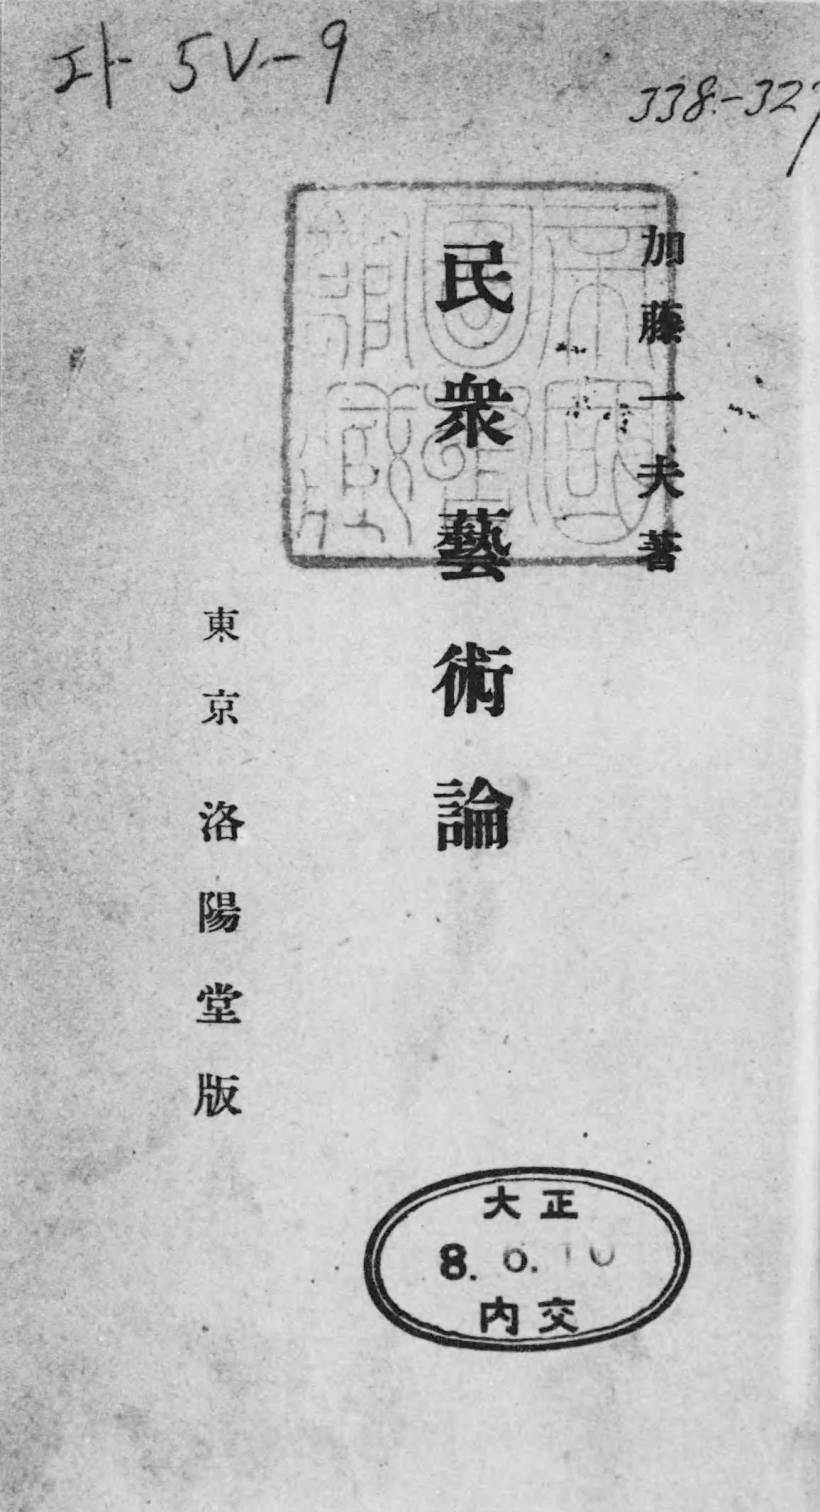 338-327
加藤一夫著
民衆藝術論
東京 洛陽堂版
帝國
圖書
館藏
大正
8. 6. 10
内交